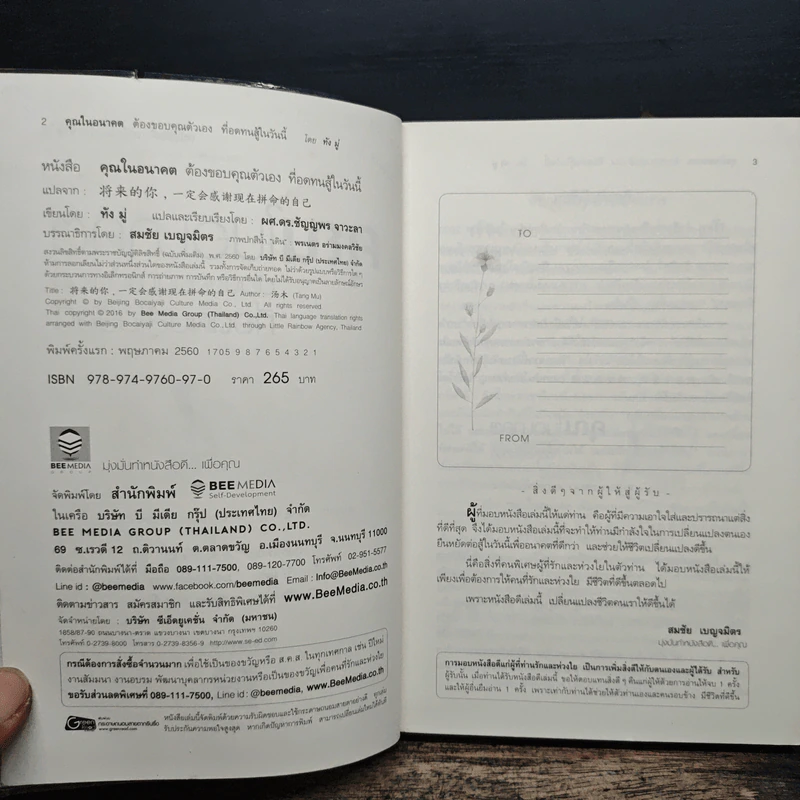 2 คุณในอนาคต ต้องขอบคุณตัวเอง ที่อดทนสู้ในวันนี้ โดย ทัง มู่
หนังสือ คุณในอนาคต ต้องขอบคุณตัวเอง ที่อดทนสู้ในวันนี้
แปลจาก : 将来的你，一定会感谢现在拼命的自己
เขียนโดย : ทัง มู่ แปลและเรียบเรียงโดย : ผศ.ดร.ชัญญพร จาวะลา
บรรณาธิการโดย : สมชัย เบญจมิตร ภาพปกสีน้ำ "เดิน" : พรเนตร อร่ามมงคลวิชัย
สงวนลิขสิทธิ์ตามพระราชบัญญัติลิขสิทธิ์ (ฉบับเพิ่มเติม) พ.ศ. 2560 โดย บริษัท บี มีเดีย กรุ๊ป (ประเทศไทย) จำกัด
ห้ามการลอกเลียนไม่ว่าส่วนหนึ่งส่วนใดของหนังสือเล่มนี้ รวมทั้งการจัดเก็บถ่ายทอด ไม่ว่าด้วยรูปแบบหรือวิธีการใด ๆ
ด้วยกระบวนการทางอิเล็กทรอนิกส์ การถ่ายภาพ การบันทึก หรือวิธีการอื่นใด โดยไม่ได้รับอนุญาตเป็นลายลักษณ์อักษร
Title : 将来的你，一定会感谢现在拼命的自己 Author : 汤木 (Tang Mu)
Copyright © by Beijing Bocaiyaji Culture Media Co., Ltd : All rights reserved.
Thai copyright © 2016 by Bee Media Group (Thailand) Co.,Ltd. Thai language translation rights
arranged with Beijing Bocaiyaji Culture Media Co.,Ltd. through Little Rainbow Agency, Thailand
พิมพ์ครั้งแรก : พฤษภาคม 2560 1705 9 8 7 6 5 4 3 2 1
ISBN 978-974-9760-97-0 ราคา 265 บาท
BEE MEDIA
GROUP
มุ่งมั่นทำหนังสือดี... เพื่อคุณ
จัดพิมพ์โดย สำนักพิมพ์ BEE MEDIA
Self-Development
ในเครือ บริษัท บี มีเดีย กรุ๊ป (ประเทศไทย) จำกัด
BEE MEDIA GROUP (THAILAND) CO.,LTD.
69 ซ.เรวดี 12 ถ.ติวานนท์ ต.ตลาดขวัญ อ.เมืองนนทบุรี จ.นนทบุรี 11000
ติดต่อสำนักพิมพ์ได้ที่ มือถือ 089-111-7500, 089-120-7700 โทรศัพท์ 02-951-5577
Line id : @beemedia www.facebook.com/beemedia Email : Info@BeeMedia.co.th
ติดตามข่าวสาร สมัครสมาชิก และรับสิทธิพิเศษได้ที่ www.BeeMedia.co.th
จัดจำหน่ายโดย : บริษัท ซีเอ็ดยูเคชั่น จำกัด (มหาชน)
1858/87-90 ถนนบางนา-ตราด แขวงบางนา เขตบางนา กรุงเทพฯ 10260
โทรศัพท์ 0-2739-8000 โทรสาร 0-2739-8356-9 http://www.se-ed.com
กรณีต้องการสั่งซื้อจำนวนมาก เพื่อใช้เป็นของขวัญหรือ ส.ค.ส. ในทุกเทศกาล เช่น ปีใหม่
งานสัมมนา งานอบรม พัฒนาบุคลากรหน่วยงานหรือเป็นของขวัญเพื่อคนที่รักและห่วงใย
ขอรับส่วนลดพิเศษที่ 089-111-7500, Line id : @beemedia, www.BeeMedia.co.th
Green
www.greenread.com
หนังสือเล่มนี้จัดพิมพ์ด้วยความรับผิดชอบและใช้กระดาษถนอมสายตาอย่างดี ทุกเล่ม
รับประกันความพอใจสูงสุด หากเกิดปัญหาการพิมพ์ สามารถเปลี่ยนเล่มใหม่ได้ทันที
3
TO
FROM
- สิ่งดีๆจากผู้ให้สู่ผู้รับ -
ผู้ที่มอบหนังสือเล่มนี้ให้แด่ท่าน คือผู้ที่มีความเอาใจใส่และปรารถนาแต่สิ่ง
ที่ดีที่สุด จึงได้มอบหนังสือเล่มนี้ที่จะทำให้ท่านมีกำลังใจในการเปลี่ยนแปลงตนเอง
ยืนหยัดต่อสู้ในวันนี้เพื่ออนาคตที่ดีกว่า และช่วยให้ชีวิตเปลี่ยนแปลงดีขึ้น
นี่คือสิ่งที่คนพิเศษผู้ที่รักและห่วงใยในตัวท่าน ได้มอบหนังสือเล่มนี้ให้
เพียงเพื่อต้องการให้คนที่รักและห่วงใย มีชีวิตที่ดีขึ้นตลอดไป
เพราะหนังสือดีเล่มนี้ เปลี่ยนแปลงชีวิตคนเราให้ดีขึ้นได้
สมชัย เบญจมิตร
มุ่งมั่นทำหนังสือดี... เพื่อคุณ
การมอบหนังสือดีแก่ผู้ที่ท่านรักและห่วงใย เป็นการเพิ่มสิ่งดีให้กับตนเองและผู้ได้รับ สำหรับ
ผู้รับนั้น เมื่อท่านได้รับหนังสือเล่มนี้ ขอให้ตอบแทนสิ่งดี ๆ คืนแก่ผู้ให้ด้วยการอ่านให้จบ 1 ครั้ง
และให้ผู้อื่นยืมอ่าน 1 ครั้ง เพราะเท่ากับท่านได้ช่วยให้ตัวท่านเองและคนรอบข้าง มีชีวิตที่ดีขึ้น